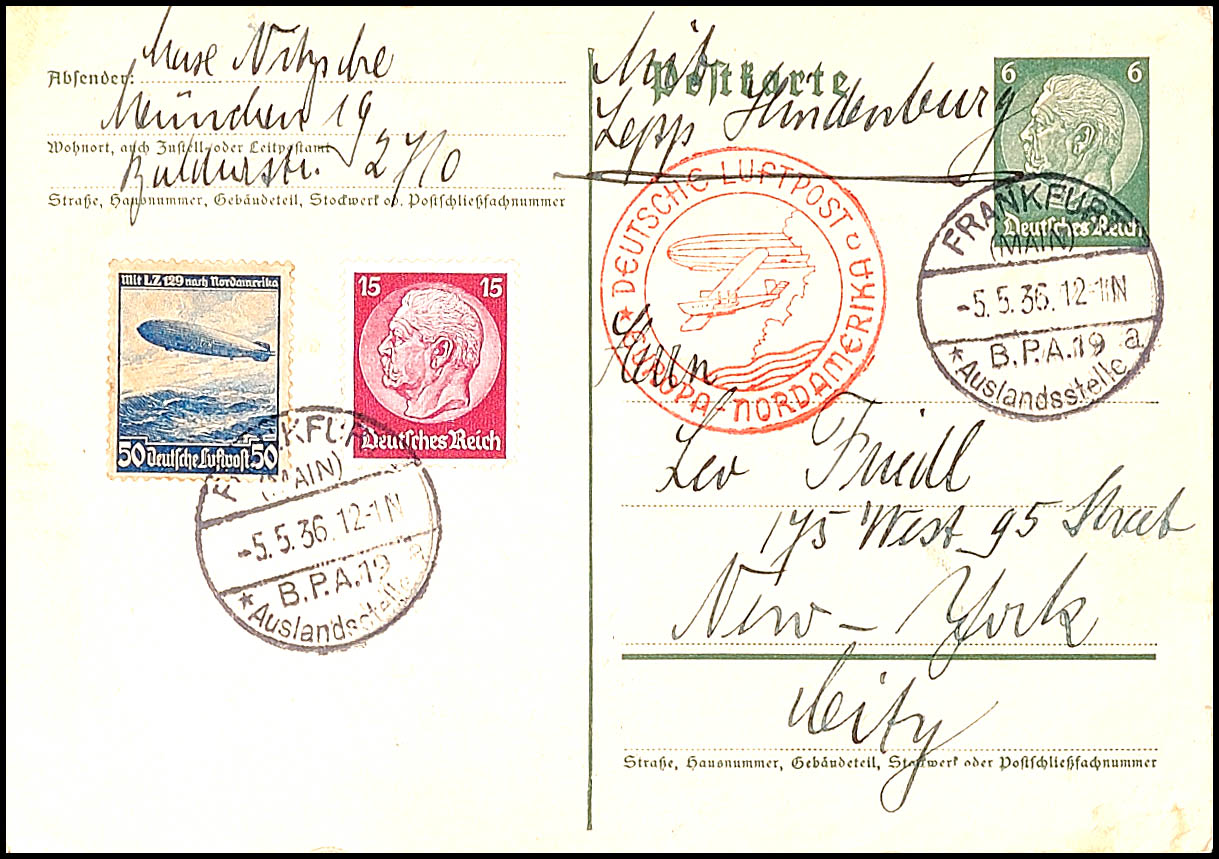 Absender:
München 19
Wohnort, auch Zustell- oder Leitpostamt
27/0
Straße, Hausnummer, Gebäudeteil, Stockwerk od. Postschließfachnummer
mit LZ 129 nach Nordamerika
50 Deutsche Luftpost 50
15 15
Deutsches Reich
FRANKFURT
(MAIN)
-5.5.36.12-1N
B.P.A.19 a
* Auslandsstelle
Postkarte
Mit
Zepp Hindenburg
6 6
Deutsches Reich
* DEUTSCHE LUFTPOST
EUROPA-NORDAMERIKA
FRANKFURT
(MAIN)
-5.5.36.12-1N
B.P.A.19 a
* Auslandsstelle
Leo Friedl
175 West 95 Street
New-York
City
Straße, Hausnummer, Gebäudeteil, Stockwerk oder Postschließfachnummer